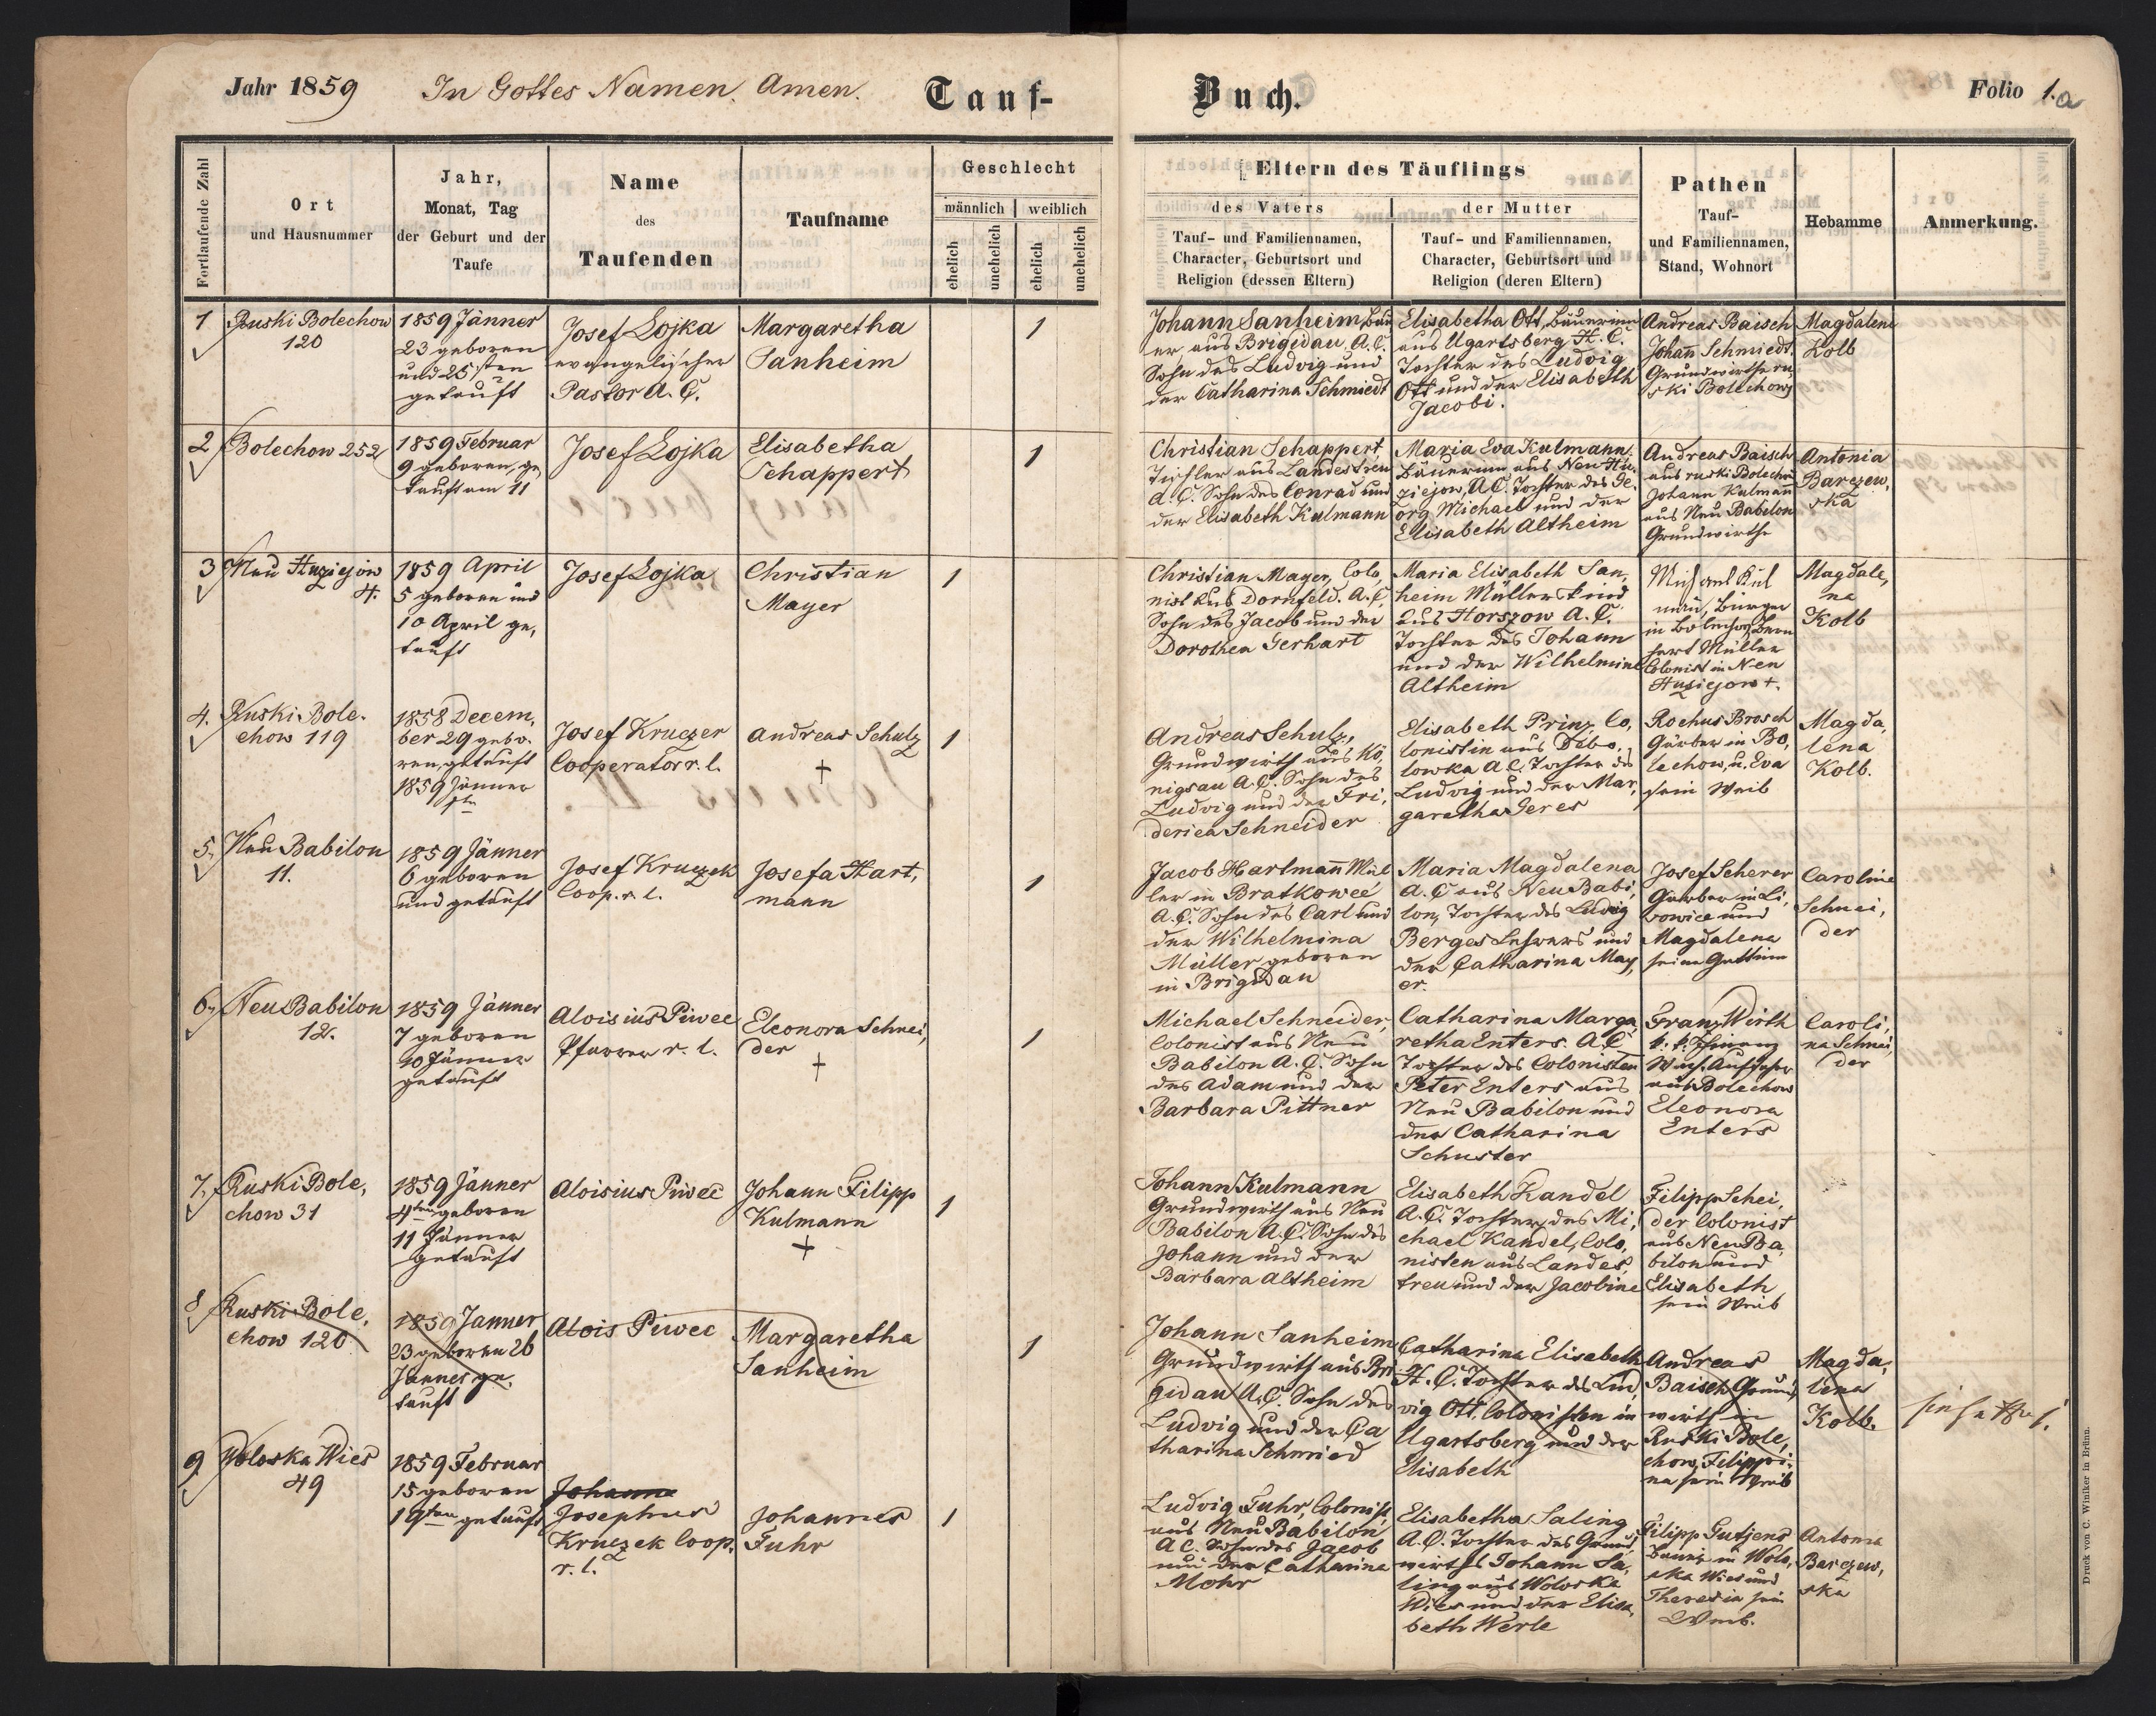 Jahr 1859 In Gottes Namen. Amen. Tauf-
Buch. Folio 1.a
Fortlaufende Zahl
Ort
und Hausnummer
Jahr,
Monat, Tag
der Geburt und der
Taufe
Name
des
Taufenden
Taufname
Geschlecht
männlich weiblich
ehelich
unehelich
ehelich
unehelich
Eltern des Täuflings
des Vaters
Tauf- und Familiennamen,
Character, Geburtsort und
Religion (dessen Eltern)
der Mutter
Tauf- und Familiennamen,
Character, Geburtsort und
Religion (deren Eltern)
Pathen
Tauf-
und Familiennamen,
Stand, Wohnort
Hebamme
Anmerkung.
1
Ruski Bolechow
120
1859 Jänner
23 geboren
und 25sten
getauft
Josef Lojka
evangelischer
Pastor A. C.
Margaretha
Sanheim
1
Johann Sanheim, Bau
er, aus Brigidau, A. C.
Sohn des Ludvig und
der Catharina Schmiedt
Elisabetha Ott, Bäuerinn
aus Ugartsberg H. C.
Tochter des Ludvig
Ott und der Elisabeth
Jacobi.
Andreas Baisch
Johañ Schmiedt,
Grundwirthe ru
ski Bolechow
Magdalena
Kolb
2
Bolechow 252
1859 Februar
9 geboren, ge,
tauft am 11
Josef Lojka
Elisabetha
Schappert
1
Christian Schappert,
Tischler aus Landestreu
A. C. Sohn des Conrad und
der Elisabeth Kulmann
Maria Eva Kulmann.
Bäuerinn aus Neu Hu,
ziejow, A. C. Tochter des Ge,
org Michael und der
Elisabeth Altheim
Andreas Baisch
aus ruski Bolechow
Johann Kulmañ
aus Neu Babilon
Grundwirthe
Antonia
Barczew,
ska
3
Neu Huziejow
4.
1859 April
5 geboren und
10 April ge,
tauft
Josef Lojka
Christian
Mayer
1
Christian Mayer, Colo,
nist aus Dornfeld. A. C.
Sohn des Jacob und der
Dorothea Gerhart
Maria Elisabeth San,
heim Müllers Kind
aus Horszow A. C.
Tochter des Johann
und der Wilhelmine
Altheim
Michael Kul
mañ, Bürger
in Bolechow, Bern
hart Müller
Colonist in Neu
Huziejow +.
Magdale,
na
Kolb
4.
Ruski Bole.
chow 119
1858 Decem,
ber 29 gebo.
ren, getauft
1859 Jänner
Josef Kruczek
Cooperator r. l.
Andreas Schulz
+
1
Andreas Schulz,
Grundwirth aus Kö,
nigsau A. C. Sohn des
Ludvig und der Fri,
derica Schneider
Elisabeth Prinz, Co,
lonistin aus Debo,
lowka A. C. Tochter des
Ludvig und der Mar,
garetha Geres
Rochus Brosch
Gärber in Bo,
lechow, u. Eva
sein Weib
Magda,
lena
Kolb.
5.
Neu Babilon
11.
1859 Jänner
6 geboren
und getauft
Josef Kruczek
Coop. r. l.
Josefa Hart,
mann
1
Jacob Hartmañ Mül
ler in Bratkowce
A. C. Sohn des Carl und
der Wilhelmina
Müller geboren
in Brigidau
Maria Magdalena
A. C. aus Neu Babi,
lon, Tochter des Ludvig
Berges Lehrers und
der Catharina May,
er.
Josef Scherer
Gärber in Li,
vowice und
Magdalena
seine Gattinn
Caroline
Schnei,
der
6.
Neu Babilon
12.
1859 Jänner
7 geboren
10 Jänner
getauft
Aloisius Piwec
Pfarrer r. l.
Eleonora Schnei,
der
+
1
Michael Schneider,
Colonist aus Neu
Babilon A. C. Sohn
des Adam und der
Barbara Pittner
Catharina Marga,
retha Enters. A. C.
Tochter des Colonisten
Peter Enters aus
Neu Babilon und
der Catharina
Schuster
Franz Wirth
k. k. Finanz
Wach. Aufseher
aus Bolechow
Eleonora
Enters
Caroli,
na Schnei,
der
7.
Ruski Bole,
chow 31
1859 Jänner
4ten geboren
11 Jänner
getauft
Aloisius Piwec
Johann Filipp
Kulmann
+
1
Johann Kulmann
Grundwirth aus Neu
Babilon A. C. Sohn des
Johann und der
Barbara Altheim
Elisabeth Kandel
A. C. Tochter des Mi,
chael Kandel, Colo,
nisten aus Landes,
treu und der Jacobine
Filipp Schei,
der Colonist
aus Neu Ba,
bilon und
Elisabeth
sein Weib
8
Ruski Bole,
chow 120
1859 Janner
23 geboren 26
Jänner ge,
tauft
Alois Piwec
Margaretha
Sanheim
1
Johann Sanheim
Grundwirth aus Bri
gidau A. C. Sohn des
Ludvig und der Ca
tharina Schmied
Catharina Elisabeth
H. C. Tochter des Lud,
vig Ott, Colonisten in
Ugartsberg und der
Elisabeth
Andreas
Baisch Grund,
wirth in
Ruski Bole,
chow, Filippi,
na sein Weib
Magda,
lena
Kolb.
siehe 1.
9
Woloska Wies
49
1859 Februar
15 geboren
19ten getauft
Johann
Josephus
Kruczek Coop.
r. l.
Johannes
Fuhr
1
Ludvig Fuhr, Colonist,
aus Neu Babilon
A C. Sohn des Jacob
und der Catharina
Mohr
Elisabetha Saling
A. C. Tochter des Grund
wirths Johann Sa,
ling aus Woloska
Wies und der Elisa,
beth Werle
Filipp Gutjens
Bauer in Wolo,
ska Wies und
Theresia sein
Weib.
Antonia
Barczew,
ska
Druck von C. Winiker in Brünn.